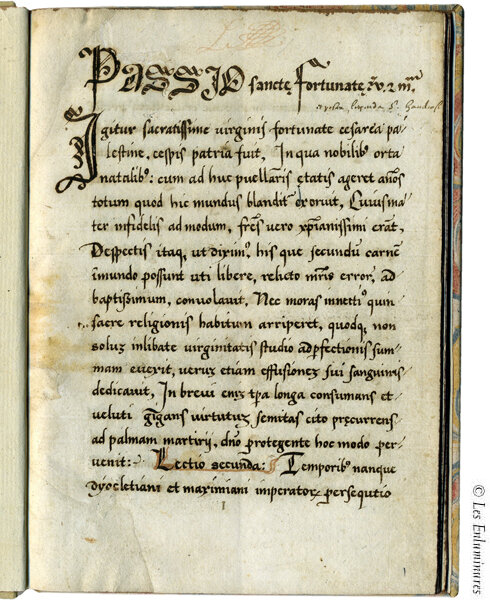 PASSIO sanctę fortunatę v. & m.
Igitur sacratissime virginis fortunate cesarea pa-
lestine, cespis patria fuit, In qua nobilib' orta
natalib': cum ad huc puellaris etatis ageret años
totum quod hic mundus blandit' exoruit, Cuius ma-
ter infidelis ad modum, frēs vero xp̄ianissimi erāt,
Despectis itaq, ut dixim', his que secundū carnē
ī mundo possunt uti libere, relicto mr̄io error, ad
baptismum, convolavit, Nec moras innetti' quin
sacre religionis habitum arriperet, quodq, non
soluz inlibate virginitatis studio ad perfectionis sum-
mam everit, veruz etiam effusionez sui sanguinis
dedicavit, In brevi eniz tp̄a longa consumans et
veluti gigans virtutuz semitas cito pręcurrens
ad palmam martirij, dnō protegente hoc modo per-
venit: Lectio secunda: Temporib' nanque
dyocletiani et maximiani imperator persequtio
1
© Les Enluminures